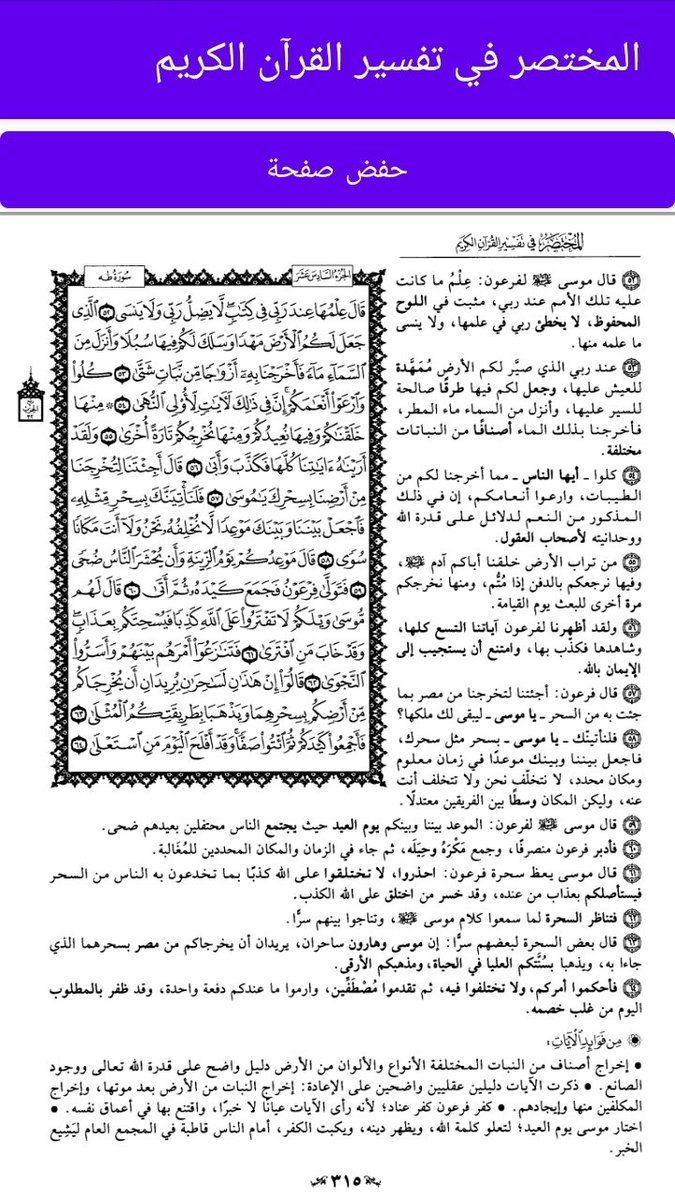 المختصر في تفسير القرآن الكريم
حفض صفحة
المختصر في تفسير القرآن الكريم
الجزء السادس عشر
سورة طه
قَالَ عِلْمُهَا عِندَ رَبِّي فِي كِتَٰبٖۖ لَّا يَضِلُّ رَبِّي وَلَا يَنسَى ٥٢ ٱلَّذِي
جَعَلَ لَكُمُ ٱلۡأَرۡضَ مَهۡدٗا وَسَلَكَ لَكُمۡ فِيهَا سُبُلٗا وَأَنزَلَ مِنَ
ٱلسَّمَآءِ مَآءٗ فَأَخۡرَجۡنَا بِهِۦٓ أَزۡوَٰجٗا مِّن نَّبَاتٖ شَتَّىٰ ٥٣ كُلُواْ
وَٱرۡعَوۡاْ أَنۡعَٰمَكُمۡۚ إِنَّ فِي ذَٰلِكَ لَأٓيَٰتٖ لِّأُوْلِي ٱلنُّهَىٰ ٥٤ ۞ مِنۡهَا
خَلَقۡنَٰكُمۡ وَفِيهَا نُعِيدُكُمۡ وَمِنۡهَا نُخۡرِجُكُمۡ تَارَةً أُخۡرَىٰ ٥٥ وَلَقَدۡ
أَرَيۡنَٰهُ ءَايَٰتِنَا كُلَّهَا فَكَذَّبَ وَأَبَىٰ ٥٦ قَالَ أَجِئۡتَنَا لِتُخۡرِجَنَا
مِنۡ أَرۡضِنَا بِسِحۡرِكَ يَٰمُوسَىٰ ٥٧ فَلَنَأۡتِيَنَّكَ بِسِحۡرٖ مِّثۡلِهِۦ
فَٱجۡعَلۡ بَيۡنَنَا وَبَيۡنَكَ مَوۡعِدٗا لَّا نُخۡلِفُهُۥ نَحۡنُ وَلَآ أَنتَ مَكَانٗا
سُوٗى ٥٨ قَالَ مَوۡعِدُكُمۡ يَوۡمُ ٱلزِّينَةِ وَأَن يُحۡشَرَ ٱلنَّاسُ ضُحٗى
٥٩ فَتَوَلَّىٰ فِرۡعَوۡنُ فَجَمَعَ كَيۡدَهُۥ ثُمَّ أَتَىٰ ٦٠ قَالَ لَهُم
مُّوسَىٰ وَيۡلَكُمۡ لَا تَفۡتَرُواْ عَلَى ٱللَّهِ كَذِبٗا فَيُسۡحِتَكُم بِعَذَابٖۖ
وَقَدۡ خَابَ مَنِ ٱفۡتَرَىٰ ٦١ فَتَنَٰزَعُوٓاْ أَمۡرَهُم بَيۡنَهُمۡ وَأَسَرُّواْ
ٱلنَّجۡوَىٰ ٦٢ قَالُوٓاْ إِنۡ هَٰذَٰنِ لَسَٰحِرَٰنِ يُرِيدَانِ أَن يُخۡرِجَاكُم
مِّنۡ أَرۡضِكُم بِسِحۡرِهِمَا وَيَذۡهَبَا بِطَرِيقَتِكُمُ ٱلۡمُثۡلَىٰ ٦٣
فَأَجۡمِعُواْ كَيۡدَكُمۡ ثُمَّ ٱئۡتُواْ صَفّٗاۚ وَقَدۡ أَفۡلَحَ ٱلۡيَوۡمَ مَنِ ٱسۡتَعۡلَىٰ ٦٤
٥٢ قال موسى ﷺ لفرعون: عِلْمُ ما كانت
عليه تلك الأمم عند ربي، مثبت في اللوح
المحفوظ، لا يخطئ ربي في علمها، ولا ينسى
ما علمه منها.
٥٣ عند ربي الذي صيَّر لكم الأرض مُمَهَّدة
للعيش عليها، وجعل لكم فيها طرقًا صالحة
للسير عليها، وأنزل من السماء ماء المطر،
فأخرجنا بذلك الماء أصنافًا من النباتات
مختلفة.
٥٤ كلوا ـ أيها الناس ـ مما أخرجنا لكم من
الطيبات، وارعوا أنعامكم، إن في ذلك
المذكور من النعم لدلائل على قدرة الله
ووحدانيته لأصحاب العقول.
٥٥ من تراب الأرض خلقنا أباكم آدم ﷺ،
وفيها نرجعكم بالدفن إذا مُتُّم، ومنها نخرجكم
مرة أخرى للبعث يوم القيامة.
٥٦ ولقد أظهرنا لفرعون آياتنا التسع كلها،
وشاهدها فكذّب بها، وامتنع أن يستجيب إلى
الإيمان بالله.
٥٧ قال فرعون: أجئتنا لتخرجنا من مصر بما
جئت به من السحر ـ يا موسى ـ ليبقى لك ملكها؟
٥٨ فلنأتينّك ـ يا موسى ـ بسحر مثل سحرك،
فاجعل بيننا وبينك موعدًا في زمان معلوم
ومكان محدد، لا نتخلّف نحن ولا تتخلف أنت
عنه، وليكن المكان وسطًا بين الفريقين معتدلًا.
٥٩ قال موسى ﷺ لفرعون: الموعد بيننا وبينكم يوم العيد حيث يجتمع الناس محتفلين بعيدهم ضحى.
٦٠ فأدبر فرعون منصرفًا، وجمع مَكْرَهُ وحِيَلَه، ثم جاء في الزمان والمكان المحددين للمُغَالبة.
٦١ قال موسى يعظ سحرة فرعون: احذروا، لا تختلقوا على الله كذبًا بما تخدعون به الناس من السحر
فيستأصلكم بعذاب من عنده، وقد خسر من اختلق على الله الكذب.
٦٢ فتناظر السحرة لما سمعوا كلام موسى ﷺ، وتناجوا بينهم سرًّا.
٦٣ قال بعض السحرة لبعضهم سرًّا: إن موسى وهارون ساحران، يريدان أن يخرجاكم من مصر بسحرهما الذي
جاءا به، ويذهبا بسُنَّتكم العليا في الحياة، ومذهبكم الأرقى.
٦٤ فأحكموا أمركم، ولا تختلفوا فيه، ثم تقدموا مُصْطَفِّين، وارموا ما عندكم دفعة واحدة، وقد ظفر بالمطلوب
اليوم من غلب خصمه.
من فوائد الآيات:
• إخراج أصناف من النبات المختلفة الأنواع والألوان من الأرض دليل واضح على قدرة الله تعالى ووجود
الصانع. • ذكرت الآيات دليلين عقليين واضحين على الإعادة: إخراج النبات من الأرض بعد موتها، وإخراج
المكلفين منها وإيجادهم. • كفر فرعون كفر عناد؛ لأنه رأى الآيات عيانًا لا خبرًا، واقتنع بها في أعماق نفسه. •
اختار موسى يوم العيد؛ لتعلو كلمة الله، ويظهر دينه، ويكبت الكفر، أمام الناس قاطبة في المجمع العام ليَشِيع
الخبر.
٣١٥